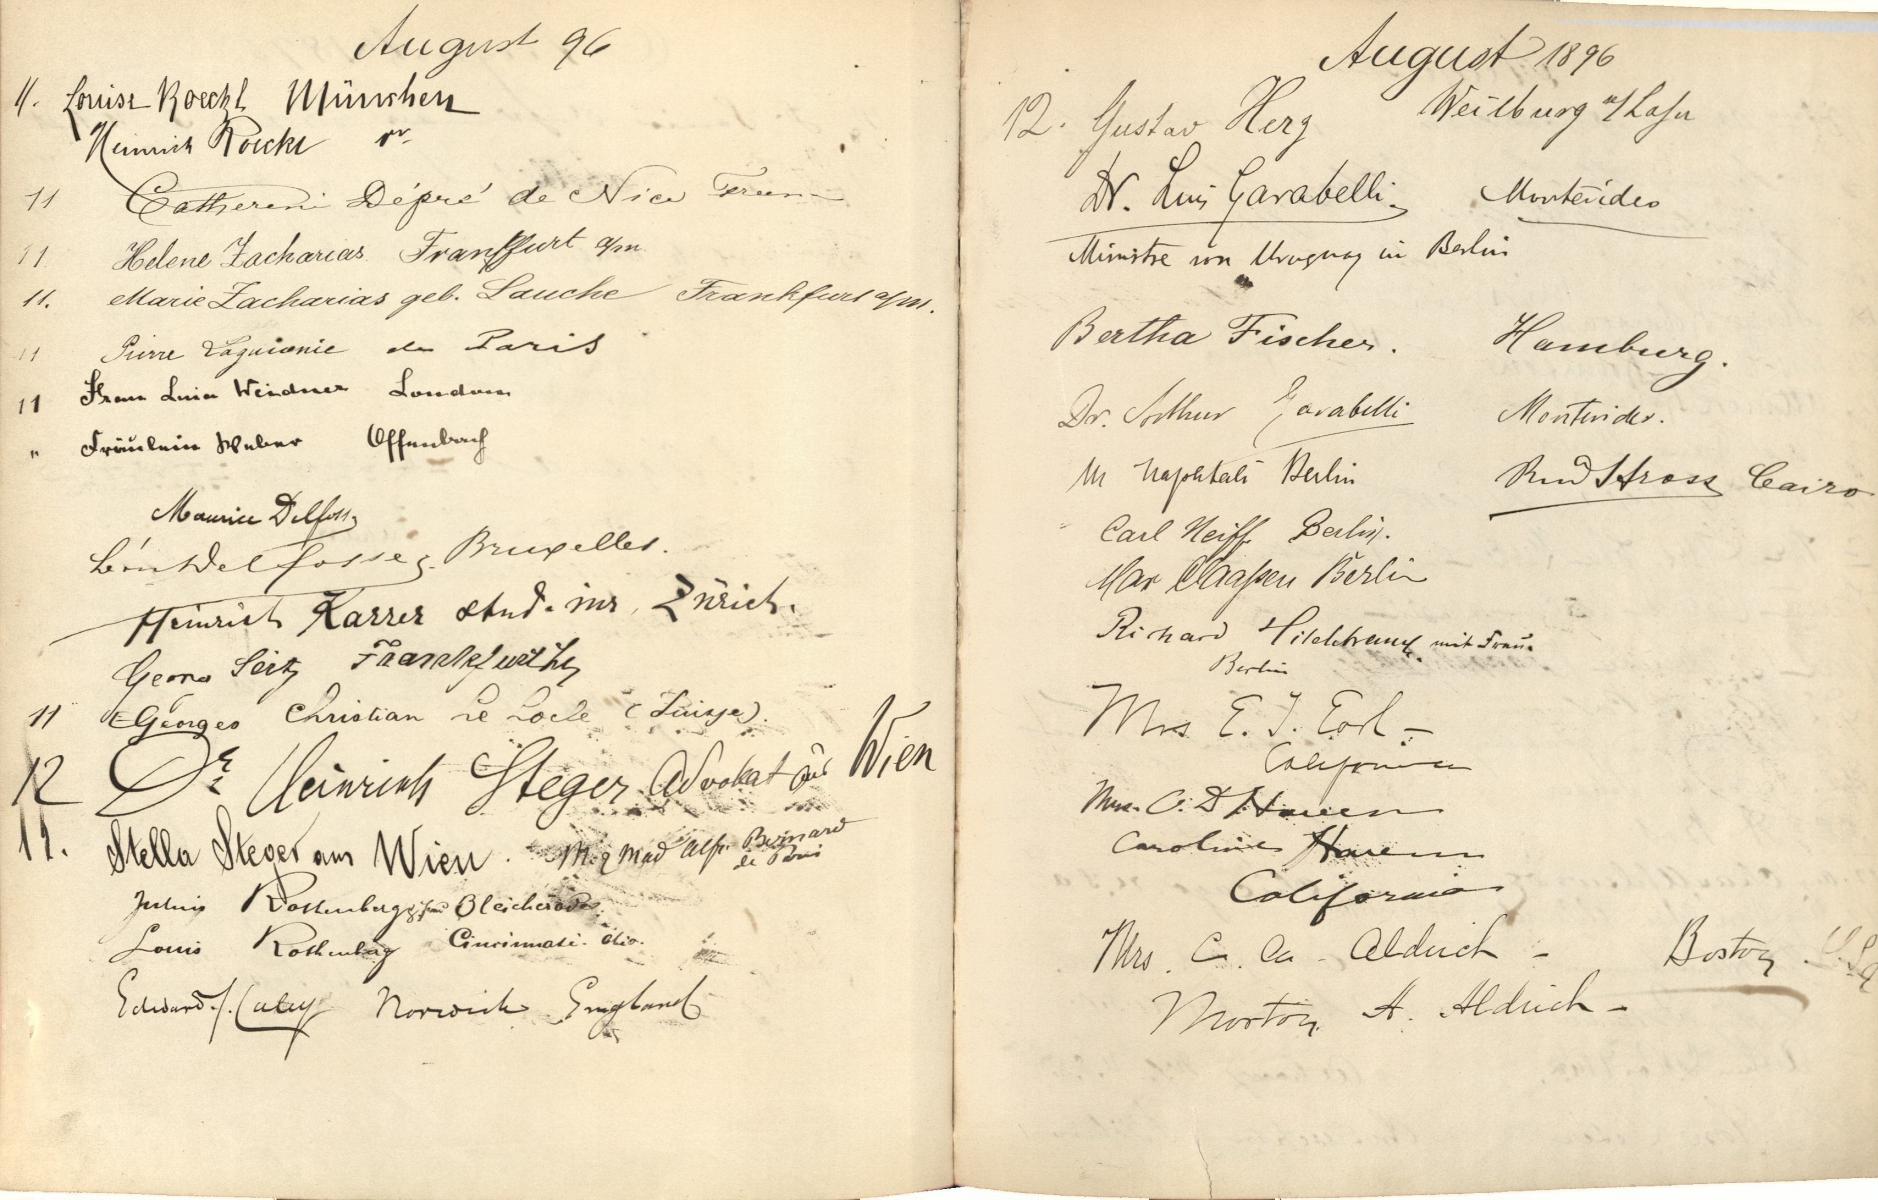 August 96
11. Louise Roeckl München
Heinrich Roeckl
11 Dépré de Nice
11 Helene Zacharias Frankfurt a/m
11. Marie Zacharias geb. Lauche Frankfurt a/m.
11 Pierre de Paris
11 Frau Weidner London
" Fräulein Weber Offenbach
Maurice Delfosse
Léon Delfosse Bruxelles.
Heinrich Karrer stud. Zürich.
Georg Seitz Frankfurt
11 Georges Christian Le Locle (Suisse).
12 Dr Heinrich Steger Advokat aus Wien
12. Stella Steger aus Wien. M. & Mad Alf. Bernard
de Paris
Julius Rothenberg Bleicherode
Louis Rothenberg Cincinnati. Ohio.
Edward J. Caley Norwich England
August 1896
12. Gustav Herz Weilburg a/Lahn
Dr. Luis Garabelli. Montevideo
Ministre von Uruguay in Berlin
Bertha Fischer. Hamburg.
Dr. Arthur Garabelli Montevideo.
M Berlin Stross Cairo
Carl Neiff Berlin.
Max Claassen Berlin
Richard Hildebrand mit Frau.
Berlin
Mrs E. T. Earl –
California
Mrs. C. D. Haven
Caroline Haven
California
Mrs. C. Aldrich – Boston U.S.A
Morton A. Aldrich –